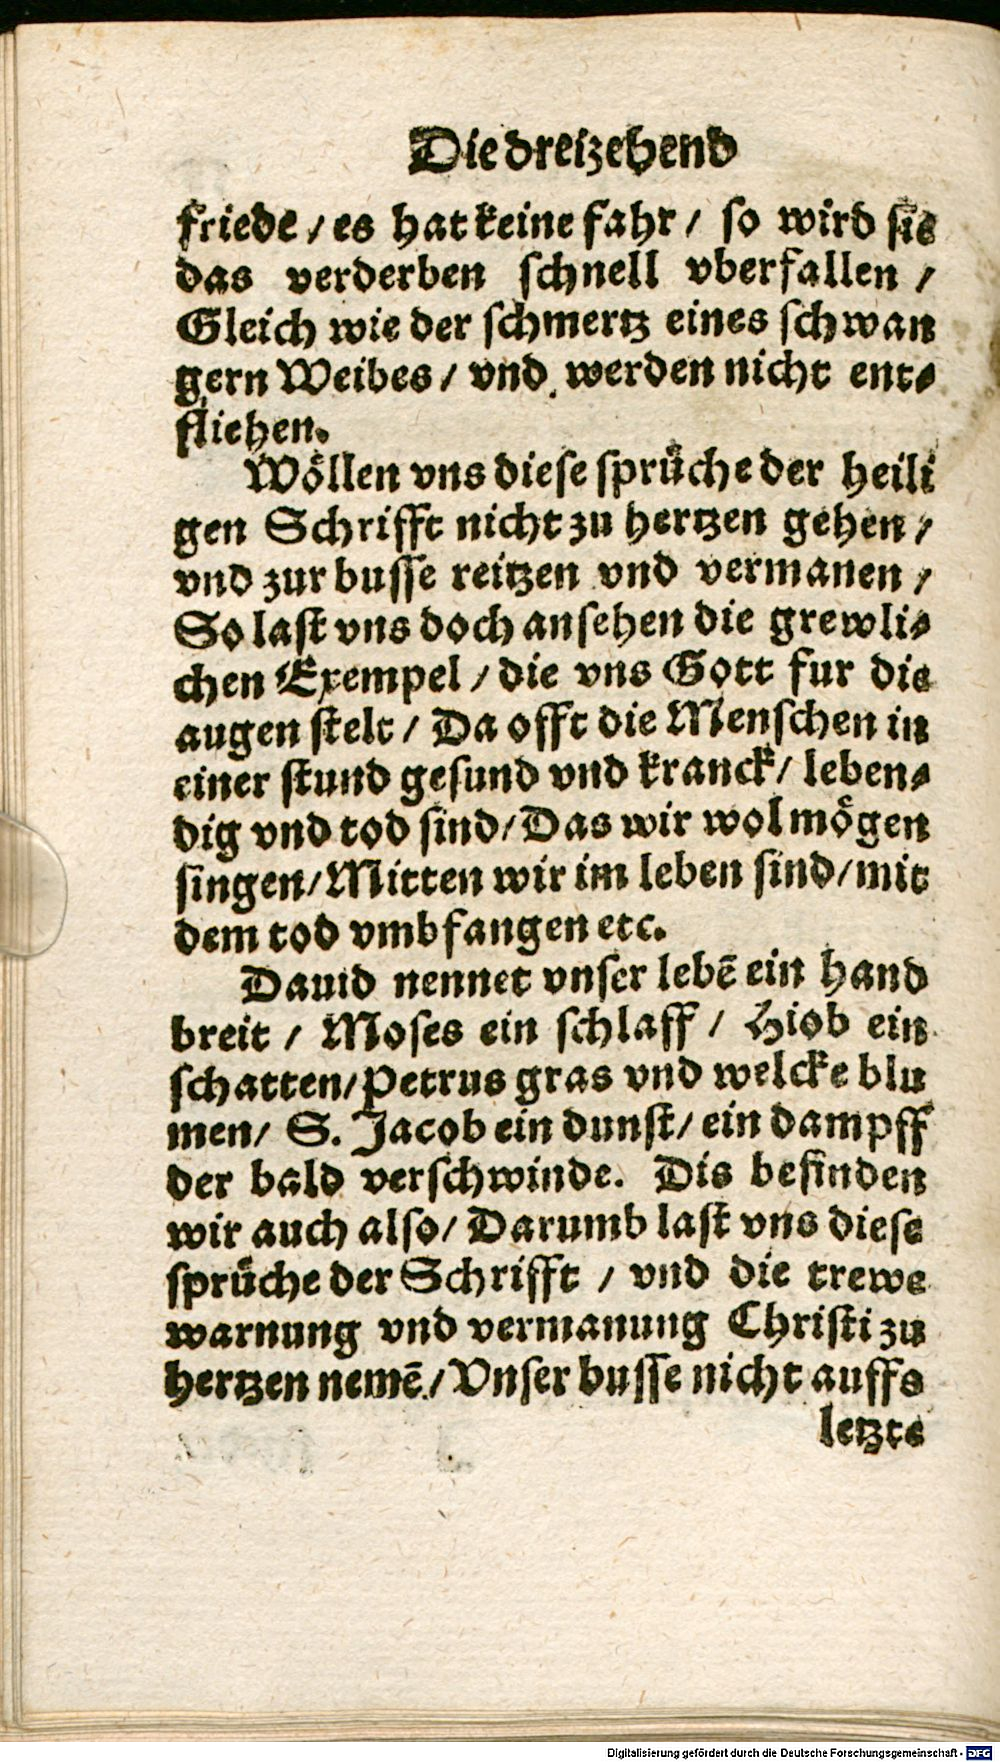 Die dreizehend
friede / es hat keine fahr / so wird sie
das verderben schnell vberfallen /
Gleich wie der schmertz eines schwan
gern Weibes / vnd werden nicht ent⸗
fliehen.
Wöllen vns diese sprüche der heili
gen Schrifft nicht zu hertzen gehen /
vnd zur busse reitzen vnd vermanen /
So last vns doch ansehen die grewli⸗
chen Exempel / die vns Gott fur die
augen stelt / Da offt die Menschen in
einer stund gesund vnd kranck / leben⸗
dig vnd tod sind / Das wir wol mögen
singen / Mitten wir im leben sind / mit
dem tod vmbfangen etc.
Dauid nennet vnser lebē ein hand
breit / Moses ein schlaff / Hiob ein
schatten / Petrus gras vnd welcke blu
men / S. Jacob ein dunst / ein dampff
der bald verschwinde. Dis befinden
wir auch also / Darumb last vns diese
sprüche der Schrifft / vnd die trewe
warnung vnd vermanung Christi zu
hertzen nemē / Vnser busse nicht auffs
letzte
Digitalisierung gefördert durch die Deutsche Forschungsgemeinschaft - DFG